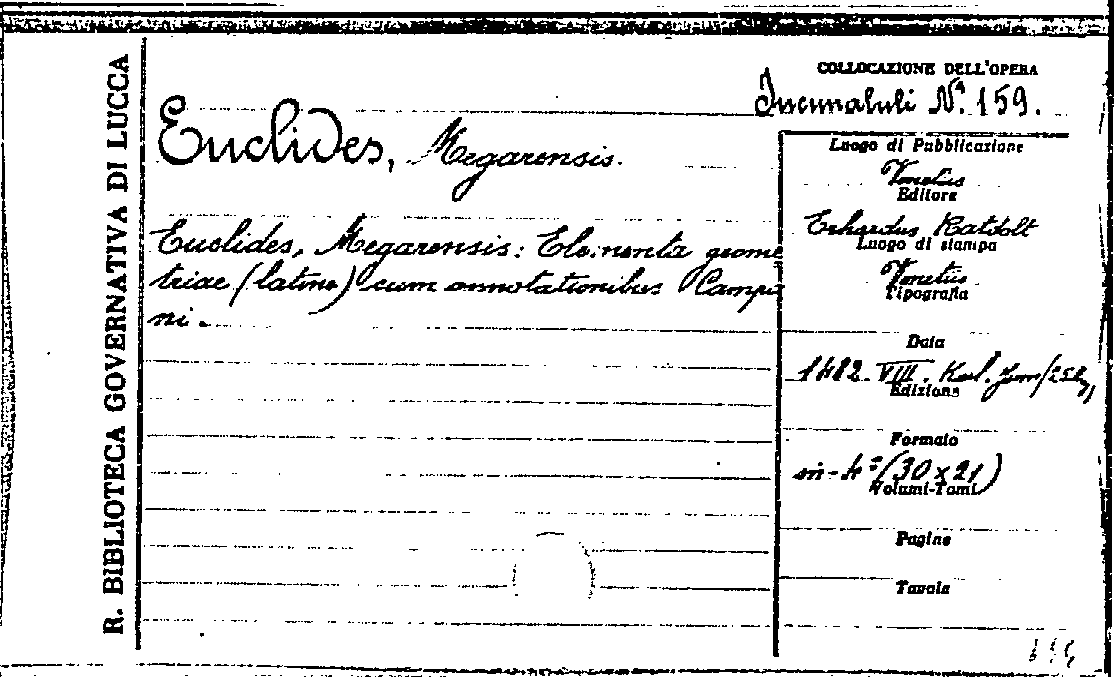 R. BIBLIOTECA GOVERNATIVA DI LUCCA
COLLOCAZIONE DELL'OPERA
Incunabuli Nº. 159.
Euclides, Megarensis.
Euclides, Megarensis: Elementa geome
triae (latine) cum annotationibus Campa
ni.
Luogo di Pubblicazione
Venetiis
Editore
Erhardus Ratdolt
Luogo di stampa
Venetiis
Tipografia
Data
1482. VIII. Kal. Jun/25
Edizione
Formato
in-4º (30 x 21)
Volumi-Tomi
Pagine
Tavole